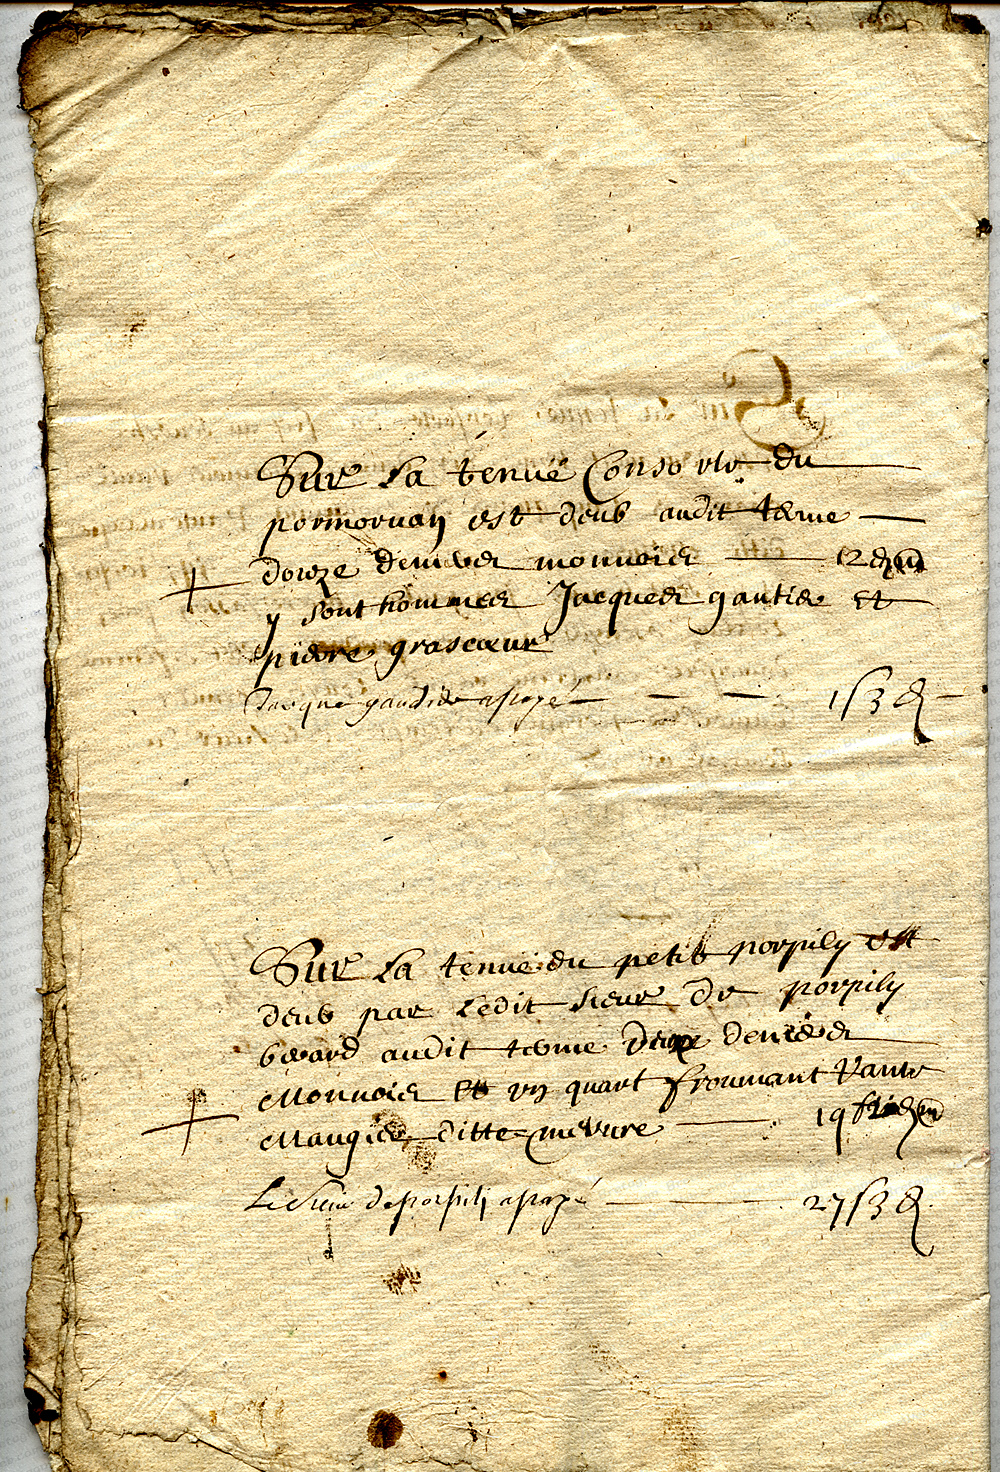 Sur La tenue Consorts du
pormoruan est deub audit terme
douze deniers monnoie 12 d m
y sont hommes Jacques gautier Et
pierre grascœur
Jacque gautier a payé 1 s 3 d
Sur La tenue du petit porpily est
deub par Ledit sieur de porpily
audit terme deux deniers
Monnoie Et vn quart froumant
Maugier ditte mesure
Le sieur de porpili a payé 27 s 3 d